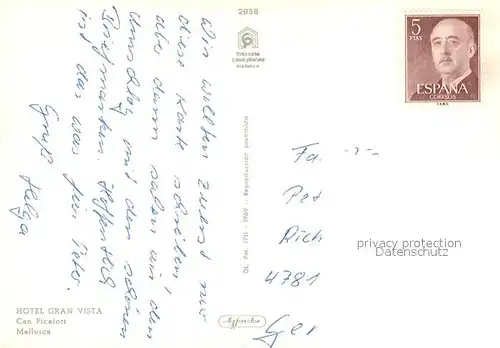 2958
foto-cine
casa planas
mallorca
5
PTAS
ESPAÑA
CORREOS
Wir wollten zuerst nur
diese Karte schreiben,
aber dann sahen wir den
Umschlag mit den schönen
Briefmarken. Hoffentlich
ist das was für Peter.
Gruß Helga
DL. PM. 1711 - 1969 - Reproducción prohibida
Fa
Pet
Rich
4781
Ger
privacy protection
Datenschutz
HOTEL GRAN VISTA
Can Picafort
Mallorca